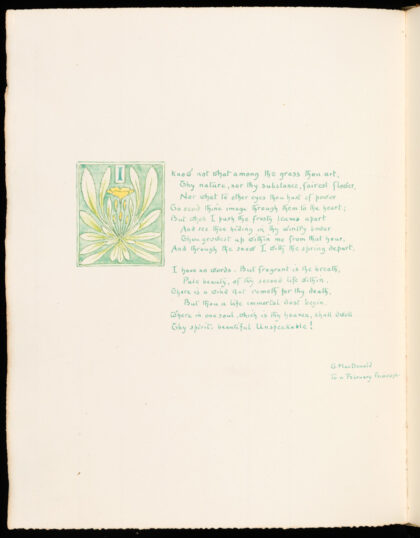 I
Know not what among the grass thou art,
Thy nature, nor thy substance, fairest flower,
Nor what to other eyes thou hast of power
To send thine image through them to the heart;
But when I push the frosty leaves apart
And see thee hiding in thy wintry bower
Thou growest up within me from that hour,
And through the snow I with the spring depart.
I have no words. But fragrant is the breath,
Pale beauty, of thy second life within.
There is a wind that cometh for thy death,
But thou a life immortal dost begin.
Where in one soul, which is thy heaven, shall dwell
Thy spirit, beautiful Unspeakable!
G. MacDonald
To a February Primrose